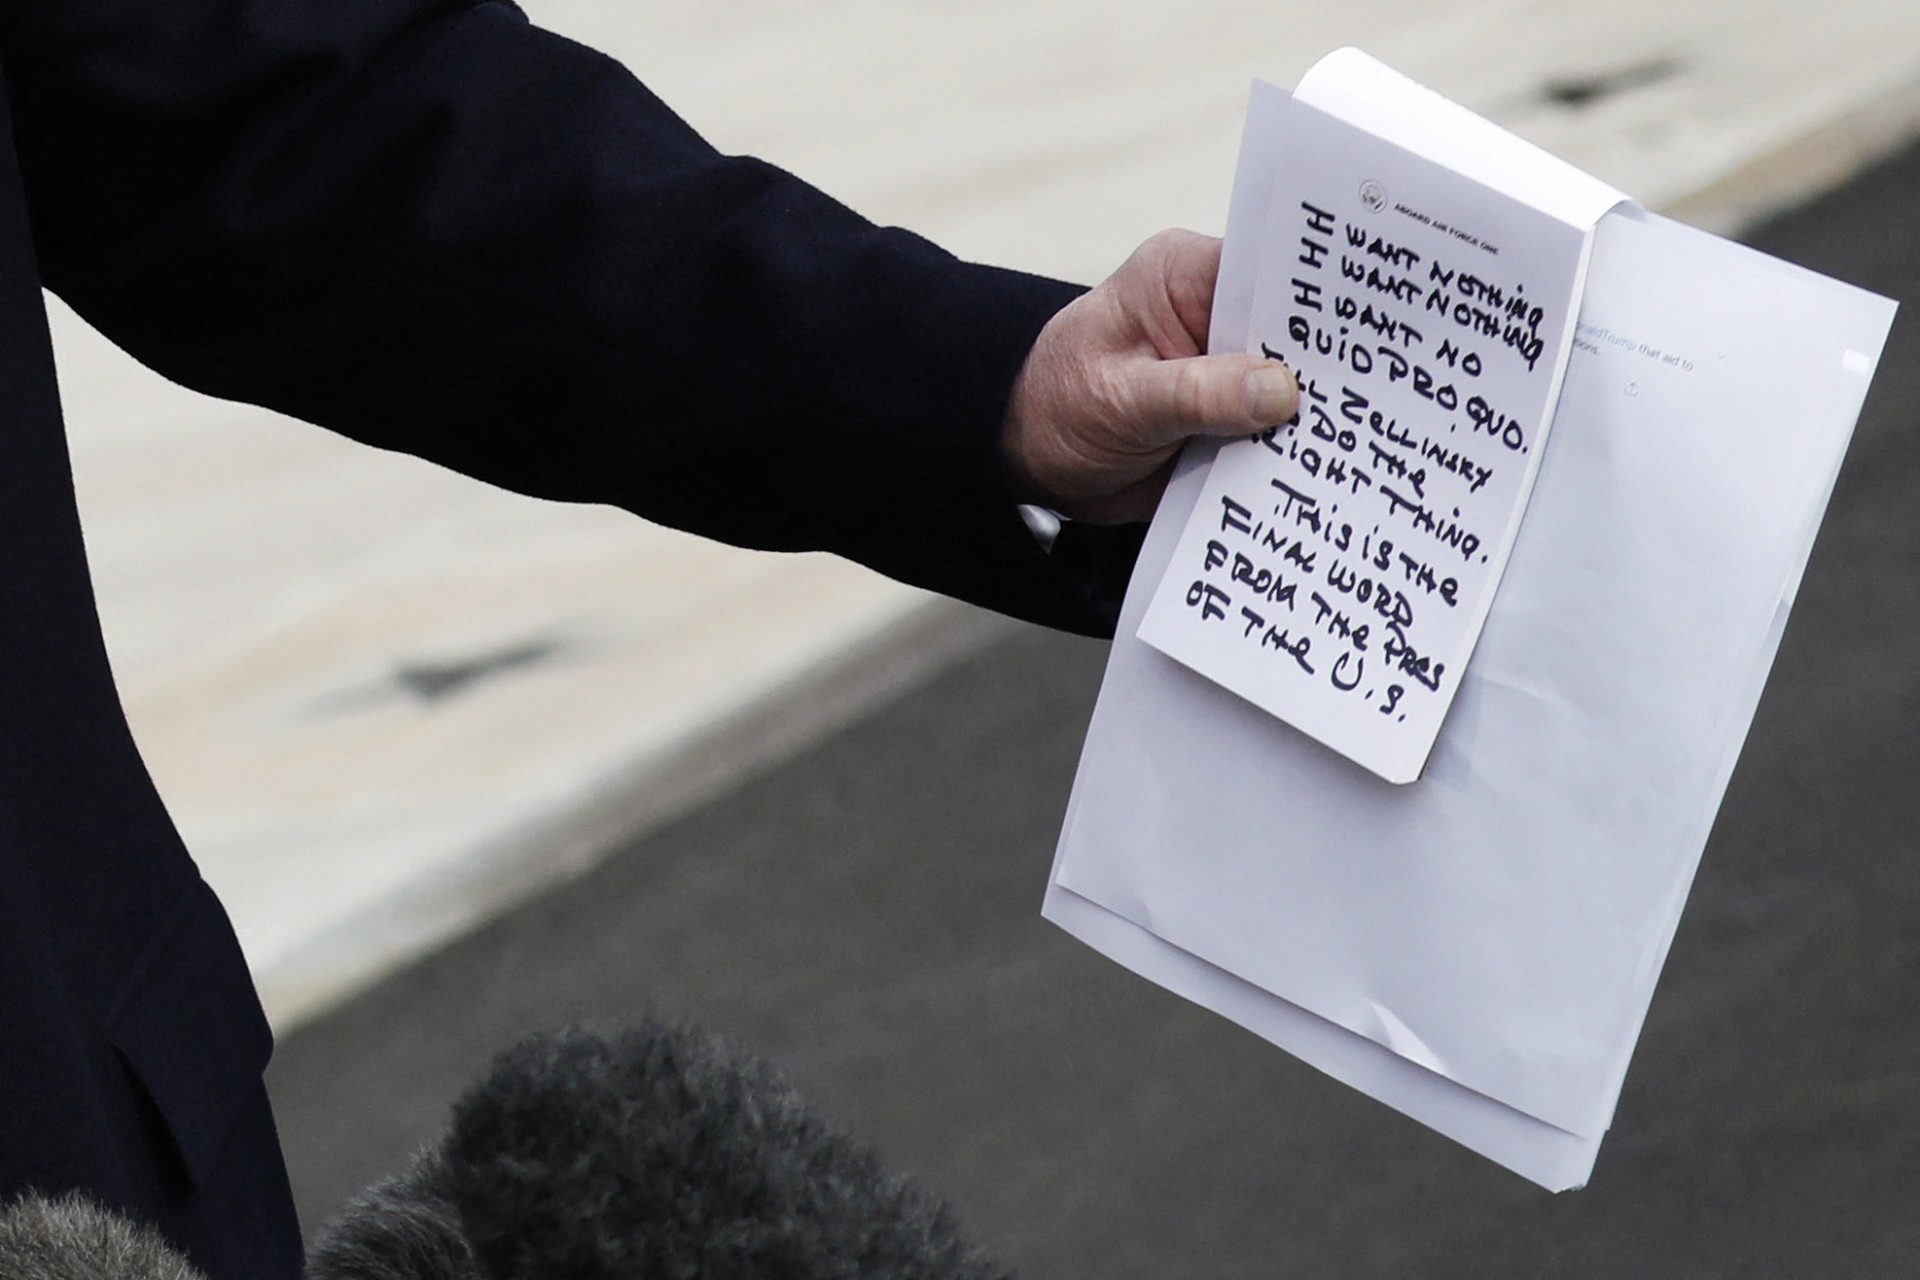 ABOARD AIR FORCE ONE
I WANT NOTHING
I WANT NOTHING
I WANT NO
QUID PRO QUO.
TELL ZELLINSKY
TO DO THE
RIGHT THING.
THIS IS THE
FINAL WORD
FROM THE PRES
OF THE U.S.
naldTrump that aid to
tions.